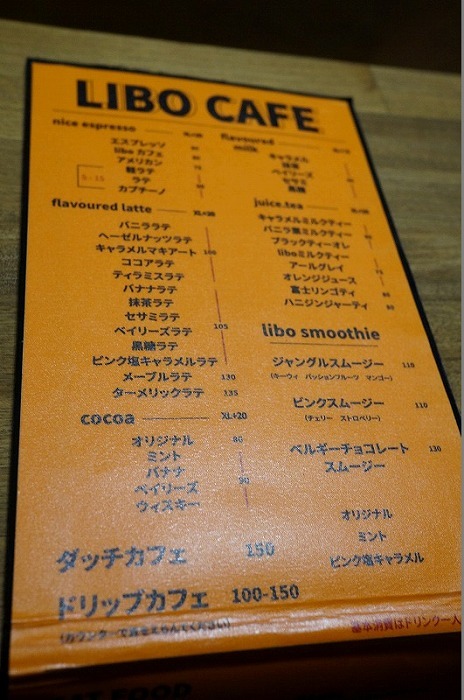 LIBO CAFE
nice espresso
エスプレッソ
libo カフェ
アメリカン
ラテ
カプチーノ
flavoured latte XL+20
バニララテ
ヘーゼルナッツラテ
キャラメルマキアート 100
ココアラテ
ティラミスラテ
バナナラテ
抹茶ラテ
セサミラテ
ベイリーズラテ 105
黒糖ラテ
ピンク塩キャラメルラテ
メープルラテ 130
ターメリックラテ 135
cocoa XL+20
オリジナル 80
ミント
バナナ
ベイリーズ 90
ウィスキー
ダッチカフェ 150
ドリップカフェ 100-150
flavoured
milk
キャラメル
抹茶
ベイリーズ
セサミ
黒糖
juice.tea
キャラメルミルクティー
バニラ蜜ミルクティー
ブラックティーオレ
liboミルクティー
アールグレイ
オレンジジュース
富士リンゴティ
ハニジンジャーティ
libo smoothie
ジャングルスムージー 110
(キーウィ パッションフルーツ マンゴー)
ピンクスムージー 110
(チェリー ストロベリー)
ベルギーチョコレート 130
スムージー
オリジナル
ミント
ピンク塩キャラメル
基本消費はドリンク一人